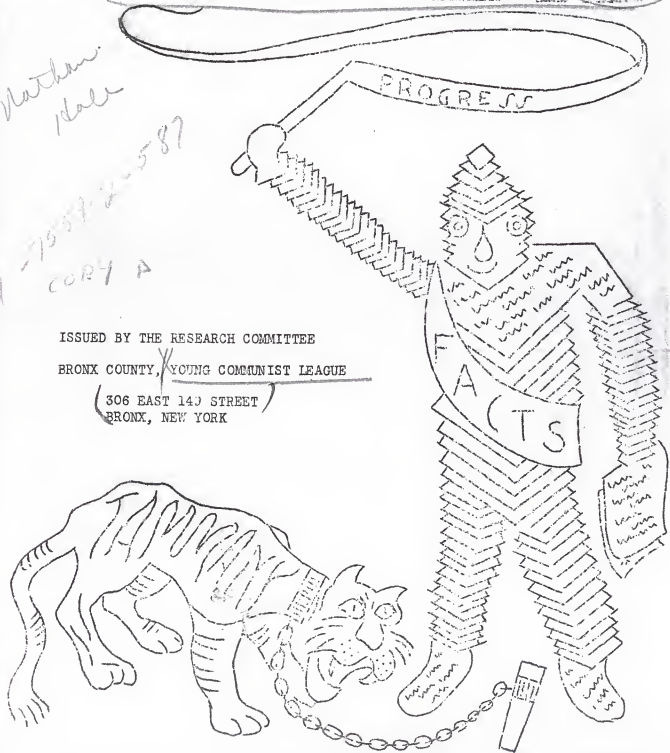 PROGRESS
Nathan
Hale
COPY A
ISSUED BY THE RESEARCH COMMITTEE
BRONX COUNTY, YOUNG COMMUNIST LEAGUE
306 EAST 149 STREET
BRONX, NEW YORK
FACTS
TAMMANY